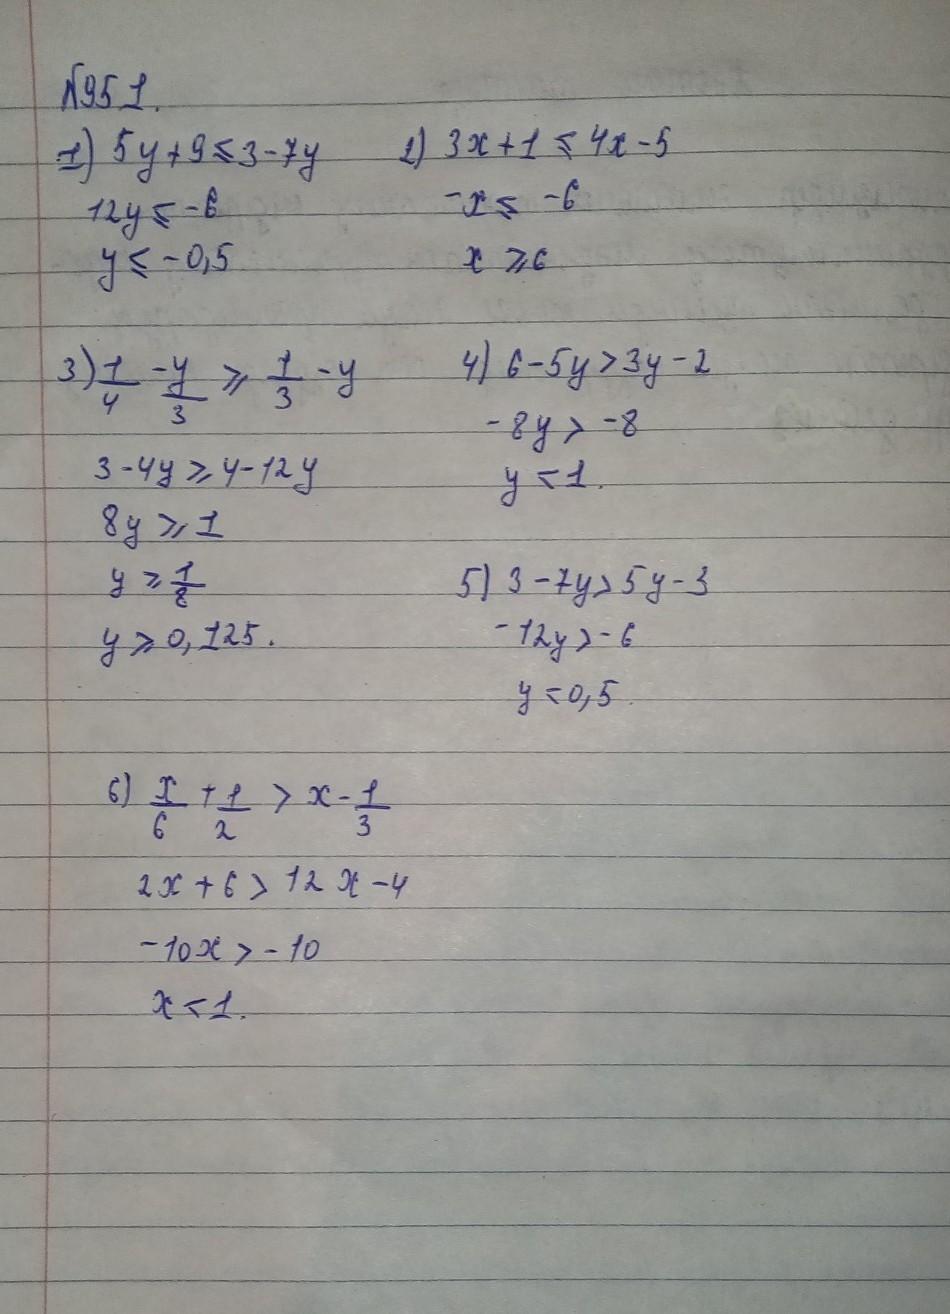 №951.
1) 5y+9⩽3-7y
12y⩽-6
y⩽-0,5
2) 3x+1⩽4x-5
-x⩽-6
x⩾6
3) 1/4 - y/3 ⩾ 1/3 - y
3-4y⩾4-12y
8y⩾1
y⩾1/8
y⩾0,125.
4) 6-5y>3y-2
-8y>-8
y<1.
5) 3-7y>5y-3
-12y>-6
y<0,5.
6) x/6 + 1/2 > x - 1/3
2x+6>12x-4
-10x>-10
x<1.